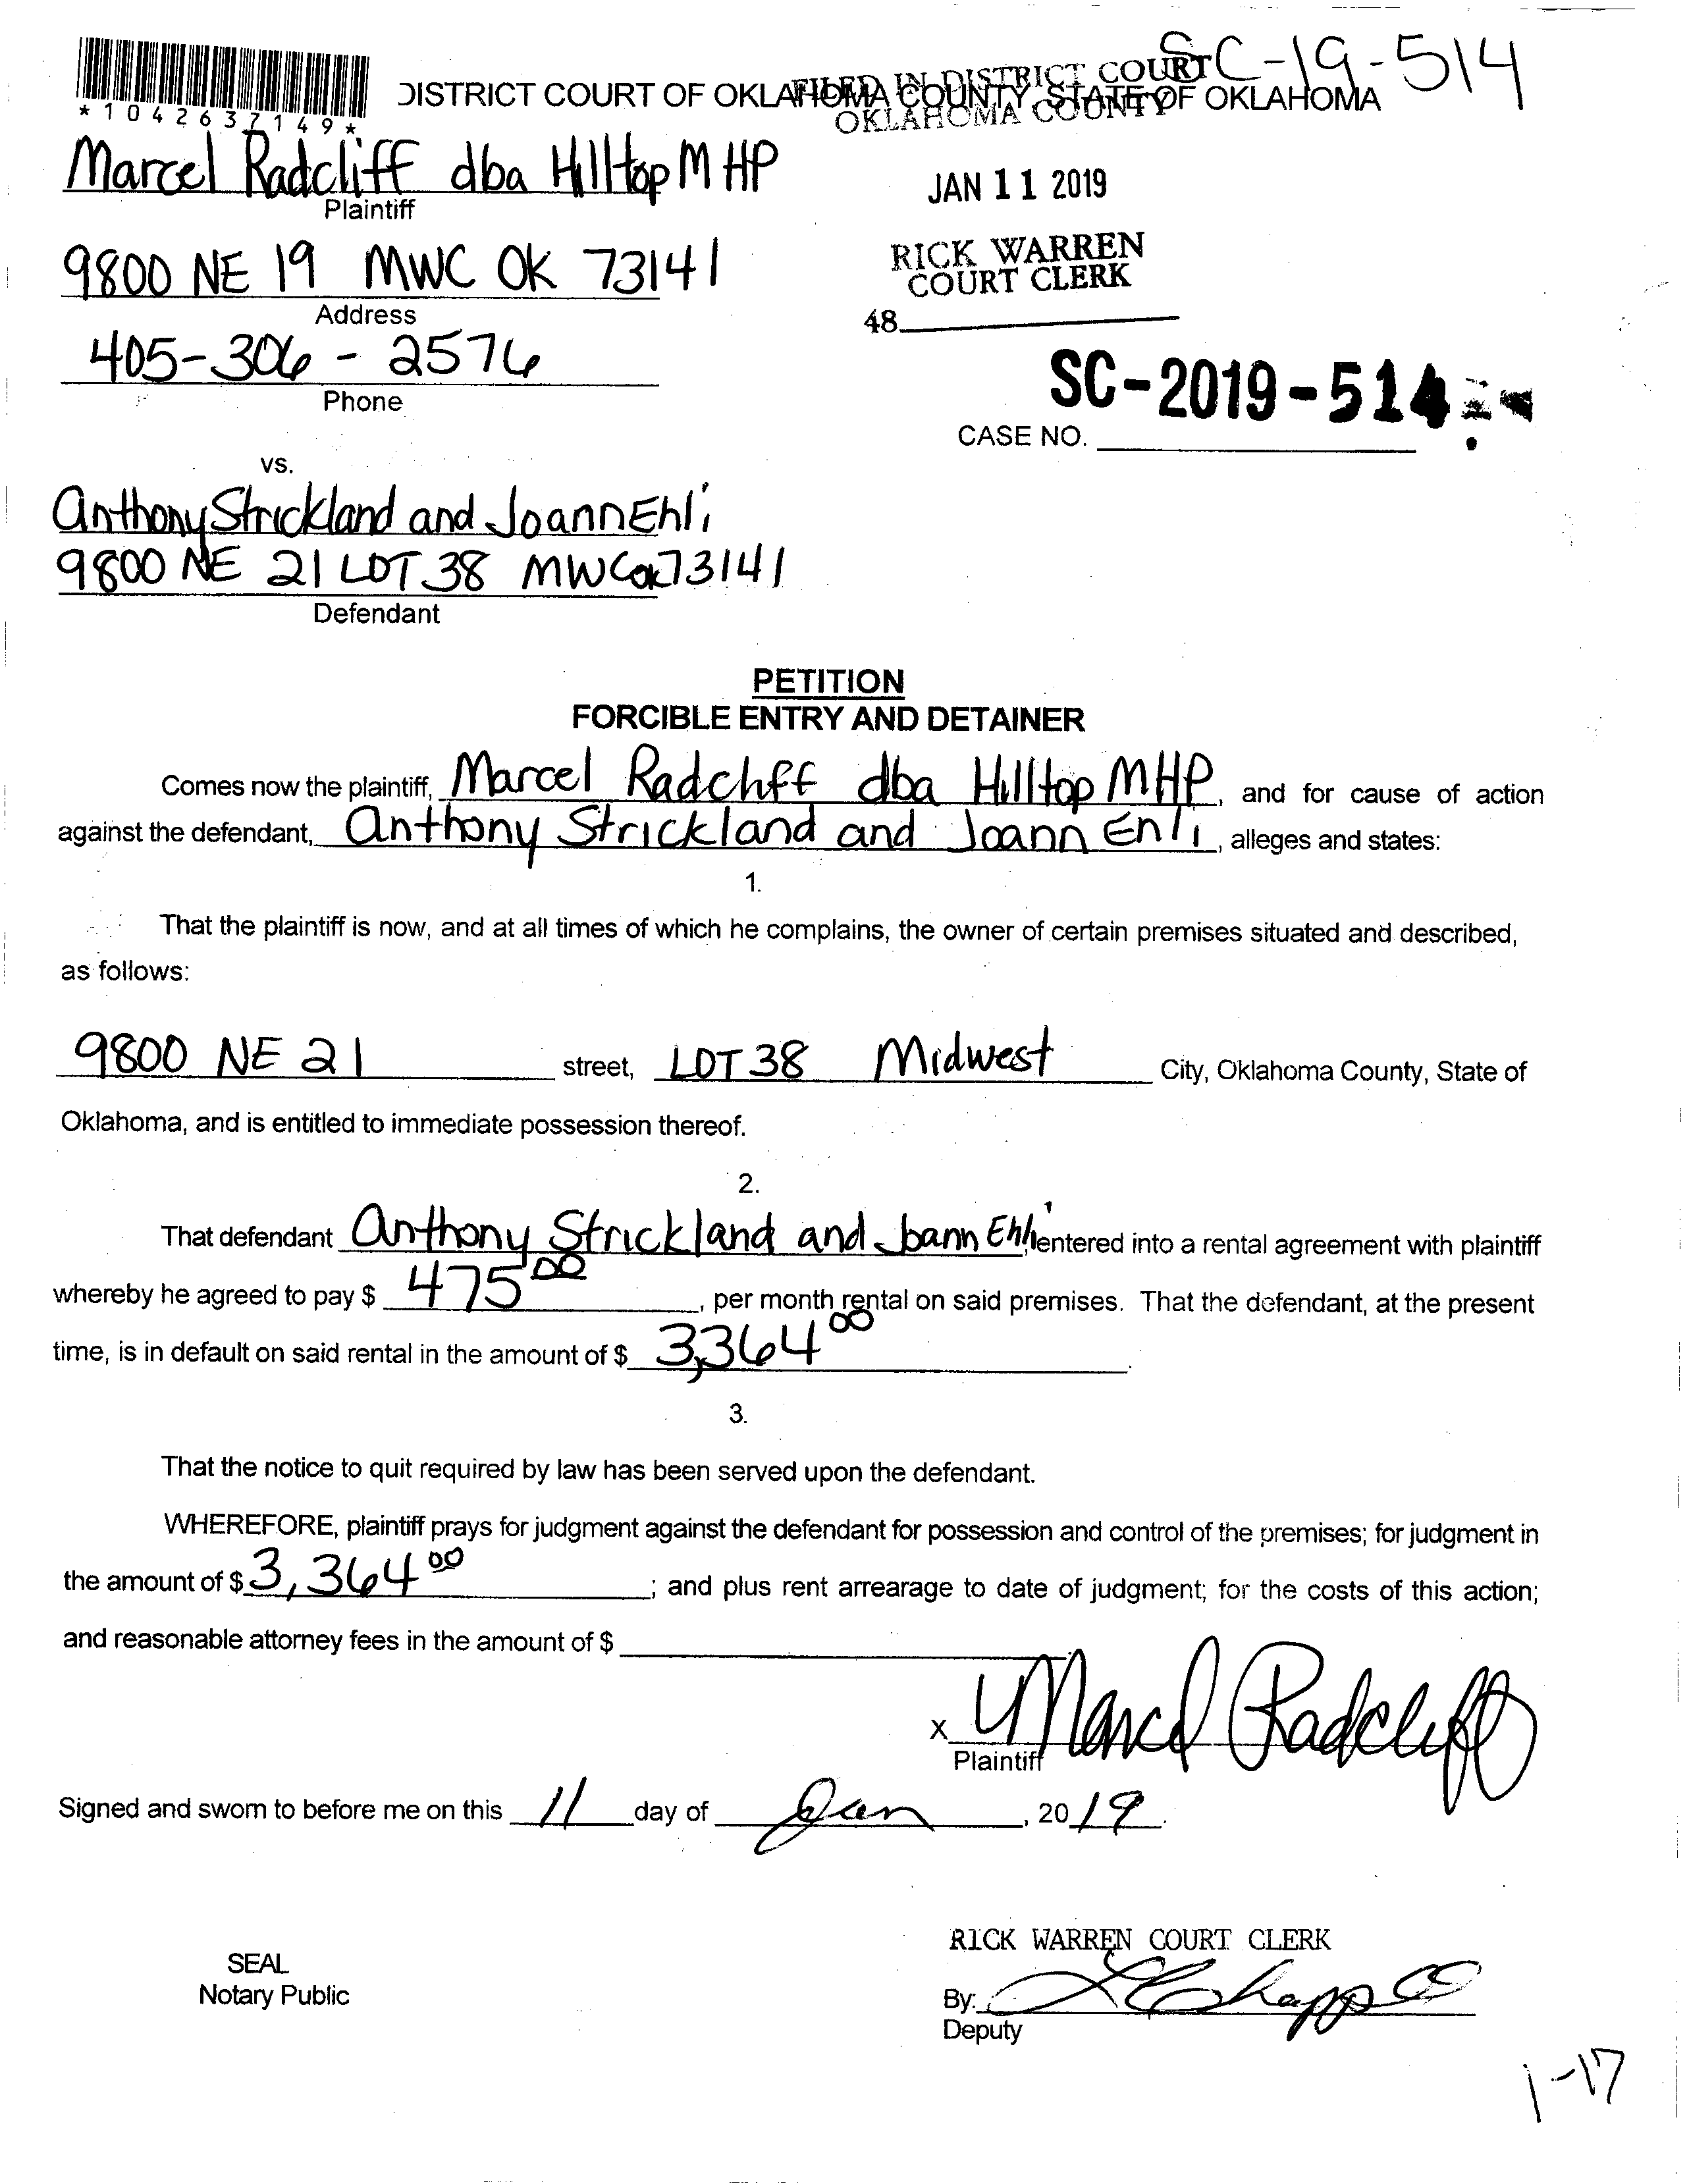 SC-19-514
DISTRICT COURT OF OKLAHOMA COUNTY, STATE OF OKLAHOMA
FILED IN DISTRICT COURT
OKLAHOMA COUNTY
*1042637149*
Marcel Radcliff dba Hilltop MHP
Plaintiff
JAN 11 2019
9800 NE 19 MWC OK 73141
Address
RICK WARREN
COURT CLERK
48
405-306-2576
Phone
SC-2019-514
CASE NO.
vs.
Anthony Strickland and Joann Ehli
9800 NE 21 LOT 38 MWC OK 73141
Defendant
PETITION
FORCIBLE ENTRY AND DETAINER
Comes now the plaintiff, Marcel Radcliff dba Hilltop MHP, and for cause of action
against the defendant, Anthony Strickland and Joann Ehli, alleges and states:
1.
That the plaintiff is now, and at all times of which he complains, the owner of certain premises situated and described,
as follows:
9800 NE 21 street, LOT 38 Midwest City, Oklahoma County, State of
Oklahoma, and is entitled to immediate possession thereof.
2.
That defendant Anthony Strickland and Joann Ehli entered into a rental agreement with plaintiff
whereby he agreed to pay $ 475 00, per month rental on said premises. That the defendant, at the present
time, is in default on said rental in the amount of $ 3,364 00.
3.
That the notice to quit required by law has been served upon the defendant.
WHEREFORE, plaintiff prays for judgment against the defendant for possession and control of the premises; for judgment in
the amount of $ 3,364 00; and plus rent arrearage to date of judgment; for the costs of this action;
and reasonable attorney fees in the amount of $
x Marcel Radcliff
Plaintiff
Signed and sworn to before me on this 11 day of Jan, 20 19.
RICK WARREN COURT CLERK
SEAL
Notary Public
By:
Deputy
1-17